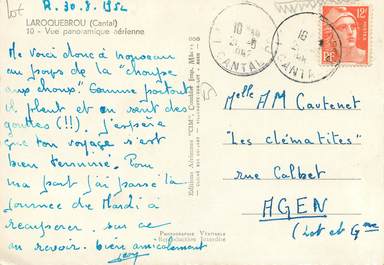 R. 30.8.1952
Lot
LAROQUEBROU (Cantal)
10 - Vue panoramique aérienne
Me voici donc à nouveau
au pays de la "choupe
aux choux". Comme partout
il pleut et on sent des
gouttes (!!). J'espère
que ton voyage s'est
bien terminé. Pour
ma part j'ai passé la
journée de Mardi à
récupérer. Sur ce
au revoir. bien amicalement
Editions Aériennes "CIM", Combier Imp. Mâcon
PHOTOGRAPHIE VÉRITABLE
Reproduction Interdite
CANTAL
16
CANTAL
12F
RF
Melle AM Cautenet
"Les clématites"
rue Calbet
AGEN
(Lot et Gne)